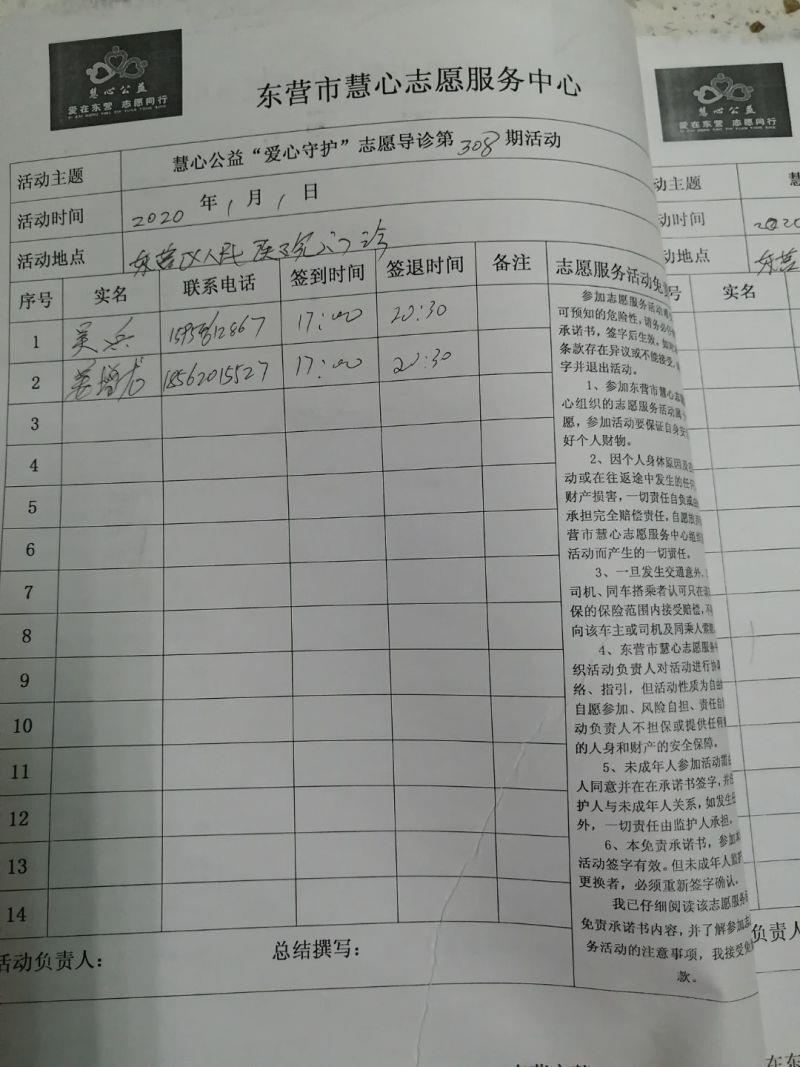 慧心公益
爱在东营 志愿同行
东营市慧心志愿服务中心
活动主题 慧心公益“爱心守护”志愿导诊第308期活动
活动时间 2020年1月1日
活动地点 东营区人民医院门诊
序号 实名 联系电话 签到时间 签退时间 备注 志愿服务活动免
1 17:00 20:30
2 18562015527 17:00 20:30
3
4
5
6
7
8
9
10
11
12
13
14
参加志愿服务活动
可预知的危险性,请务必
承诺书,签字后生效。如
条款存在异议或不能接受
字并退出活动。
1、参加东营市慧心志
心组织的志愿服务活动属
愿,参加活动要保证自身安
好个人财物。
2、因个人身体原因及
动或在往返途中发生的任
财产损害,一切责任自负或
承担完全赔偿责任,自愿放
营市慧心志愿服务中心组
活动而产生的一切责任。
3、一旦发生交通意外,
司机、同车搭乘者认可只在
保的保险范围内接受赔偿,不
向该车主或司机及同乘人索
4、东营市慧心志愿服务
织活动负责人对活动进行协
络、指引,但活动性质为自
自愿参加、风险自担、责任自
动负责人不担保或提供任何
的人身和财产的安全保障。
5、未成年人参加活动需
人同意并在在承诺书签字,并
护人与未成年人关系,如发生
外,一切责任由监护人承担,
6、本免责承诺书,参加
活动签字有效。但未成年人监
更换者,必须重新签字确认。
我已仔细阅读该志愿服务
免责承诺书内容,并了解参加志
务活动的注意事项,我接受免
款。
活动负责人: 总结撰写:
慧心公益
爱在东营 志愿同行
动主题 慧
动时间 2020
动地点 东营
号 实名
负责人
在东